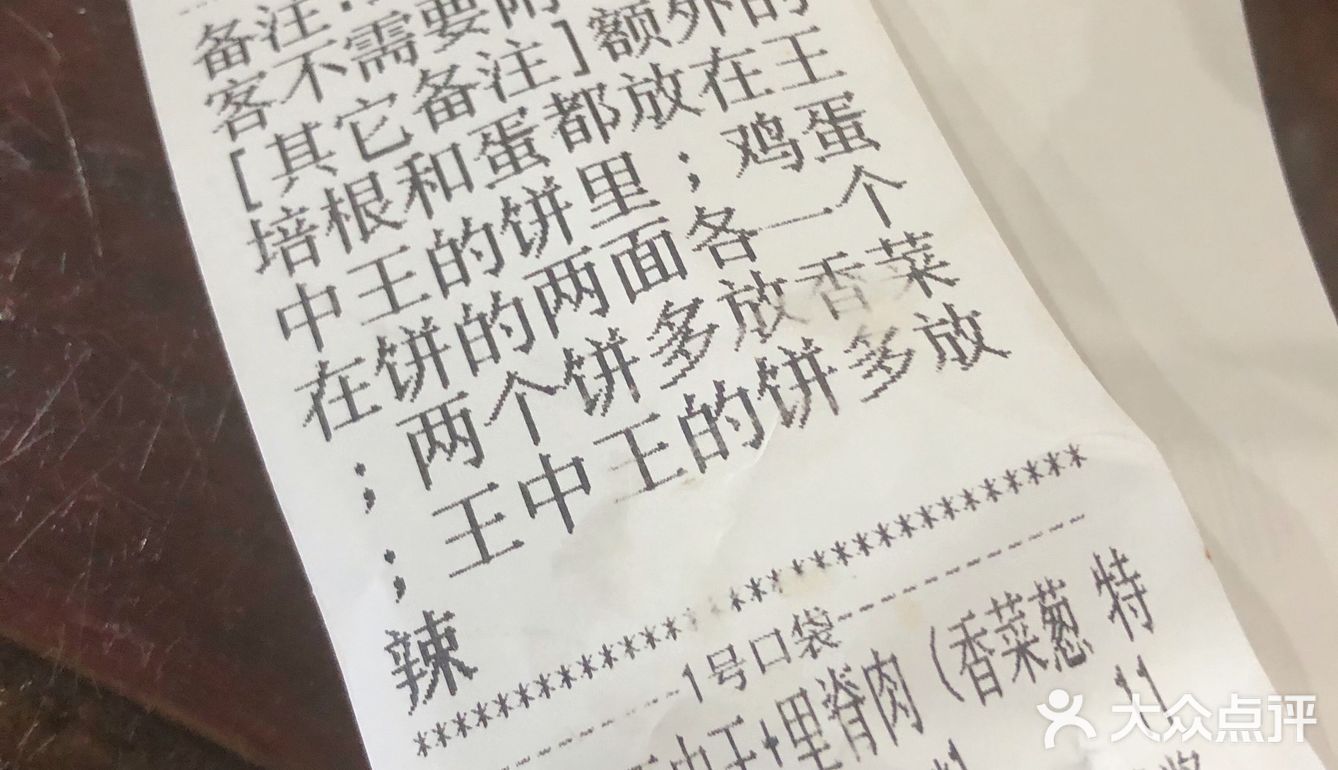 备注:
客不需要附
[其它备注]额外的
培根和蛋都放在王
中王的饼里；鸡蛋
在饼的两面各一个
；两个饼多放香菜
；王中王的饼多放
辣
********************************
--------1号口袋--------
中王+里脊肉(香菜葱 特
大众点评